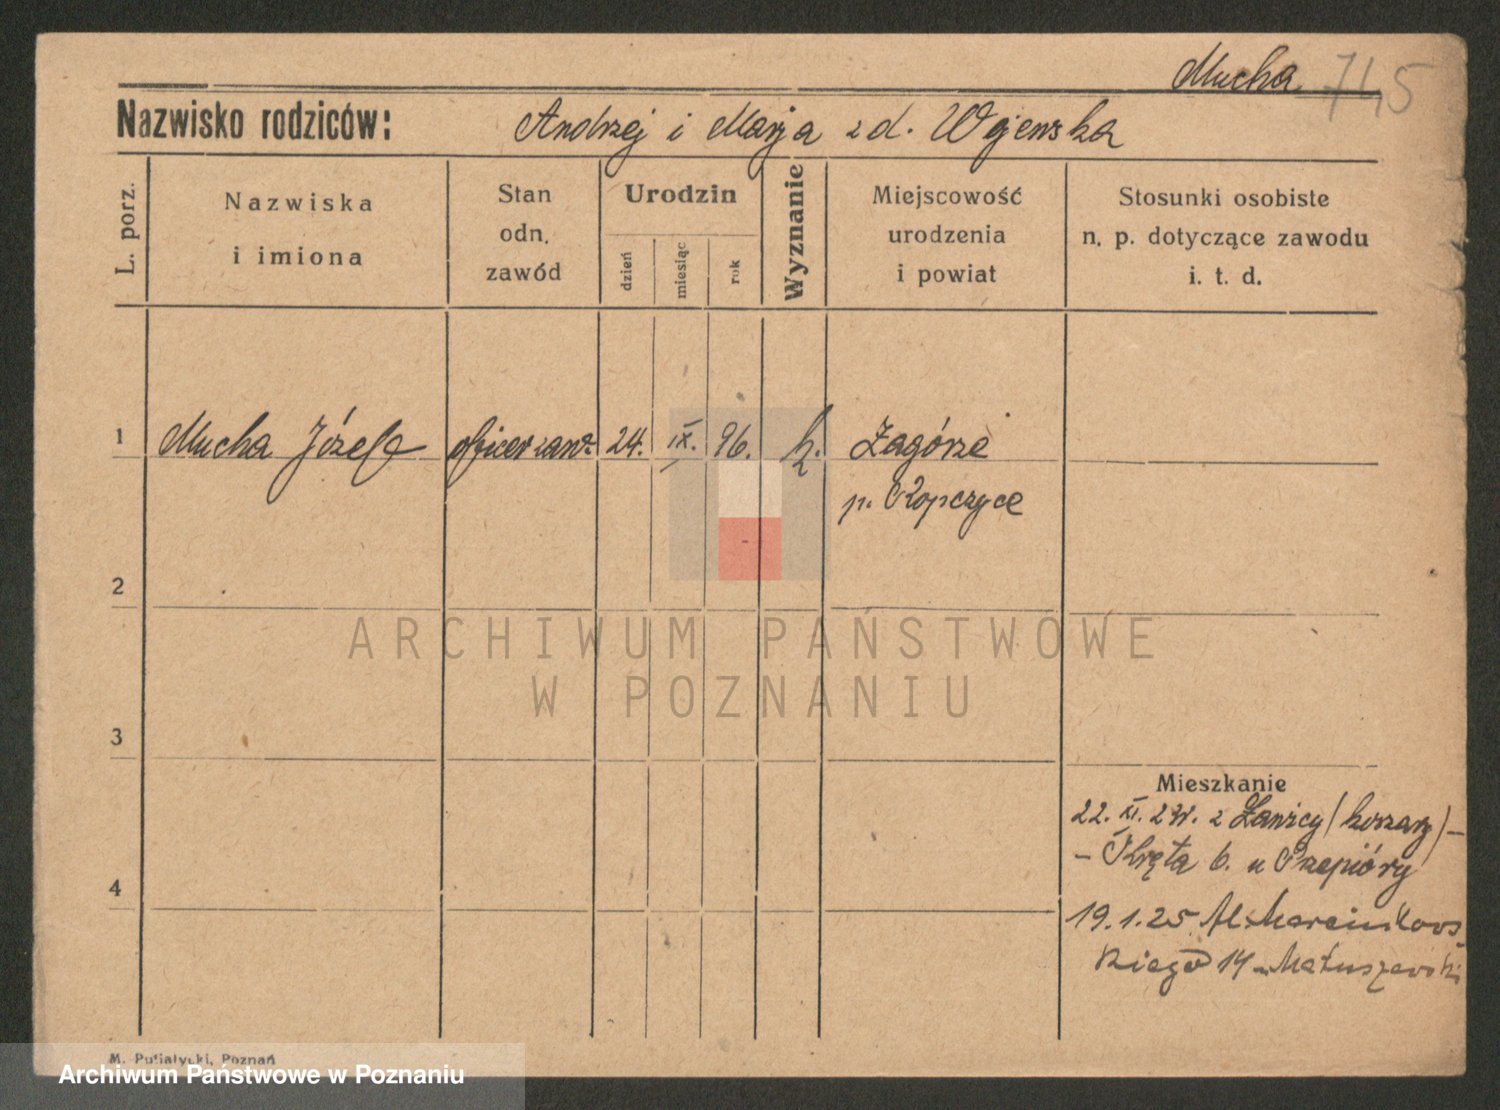 Mucha 745
Nazwisko rodziców: Andrzej i Marja z d. Wojewska
L. porz.
Nazwiska
i imiona
Stan
odn.
zawód
Urodzin
dzień
miesiąc
rok
Wyznanie
Miejscowość
urodzenia
i powiat
Stosunki osobiste
n. p. dotyczące zawodu
i. t. d.
1 Mucha Józef oficer zaw. 24. IX. 96. k. Zagórze
p. Ropczyce
2
ARCHIWUM PAŃSTWOWE
W POZNANIU
3
Mieszkanie
22. XI. 24. z Ławicy (koszary) -
- Kręta 6. u Czepióry
4
19.1.25 Al. Marcinkows
kiego 14 - Matuszewski
M. Putiatycki, Poznań
Archiwum Państwowe w Poznaniu